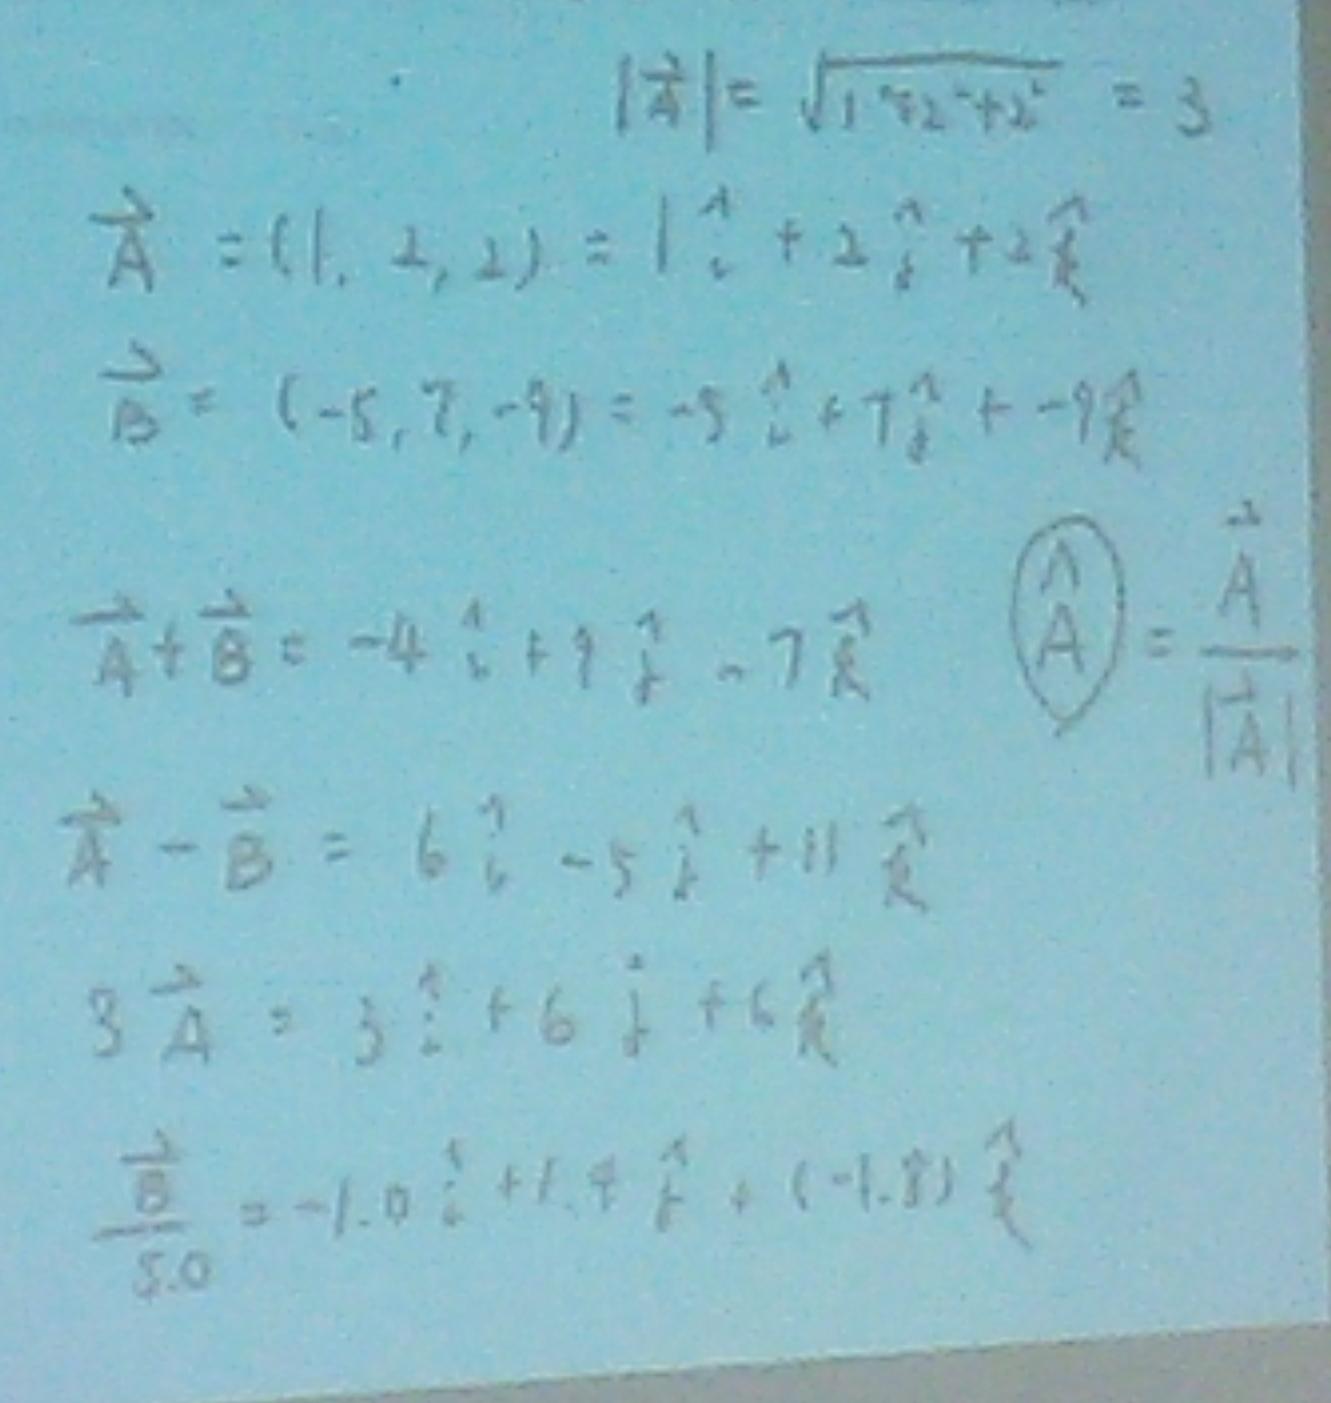 |A⃗| = √(1²+2²+2²) = 3
A⃗ = (1, 2, 2) = 1î + 2ĵ + 2k̂
B⃗ = (-5, 7, -9) = -5î + 7ĵ + -9k̂
A⃗ + B⃗ = -4î + 9ĵ - 7k̂
Â = A⃗ / |A⃗|
A⃗ - B⃗ = 6î - 5ĵ + 11k̂
3A⃗ = 3î + 6ĵ + 6k̂
B⃗ / 5.0 = -1.0î + 1.4ĵ + (-1.8)k̂